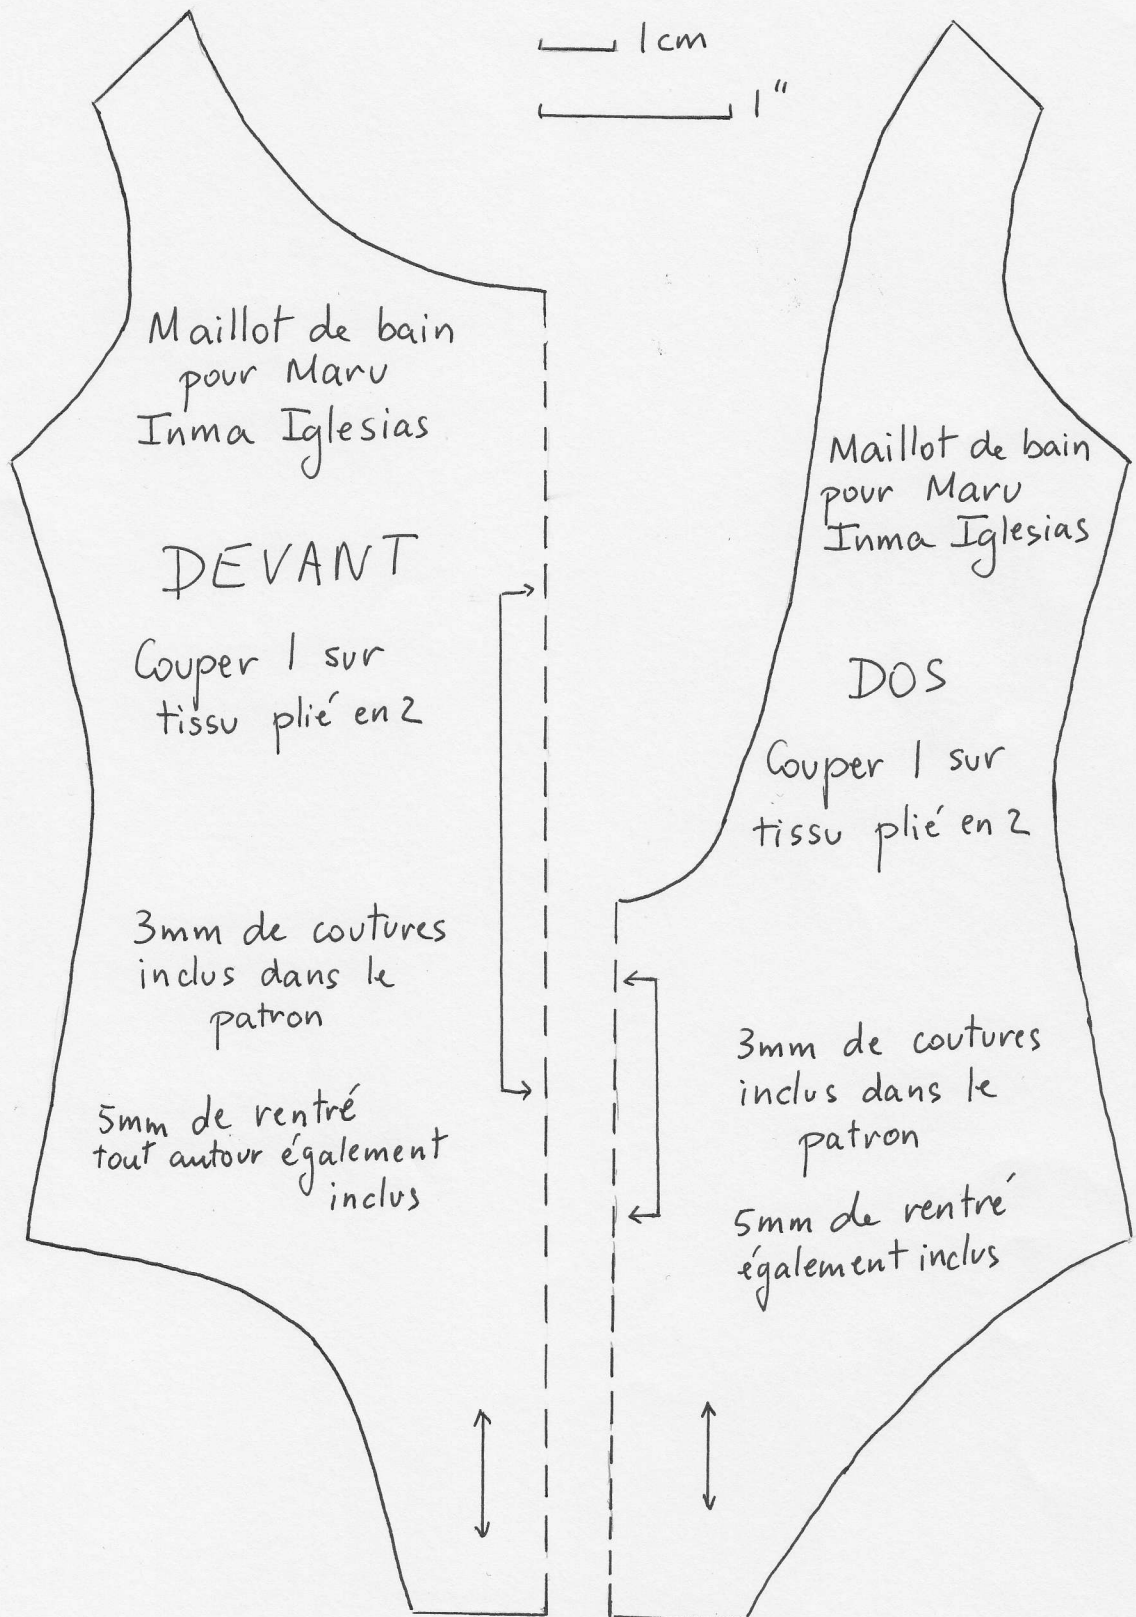 1 cm
1"
Maillot de bain
pour Maru
Inma Iglesias
DEVANT
Couper 1 sur
tissu plié en 2
3mm de coutures
inclus dans le
patron
5mm de rentré
tout autour également
inclus
Maillot de bain
pour Maru
Inma Iglesias
DOS
Couper 1 sur
tissu plié en 2
3mm de coutures
inclus dans le
patron
5mm de rentré
également inclus